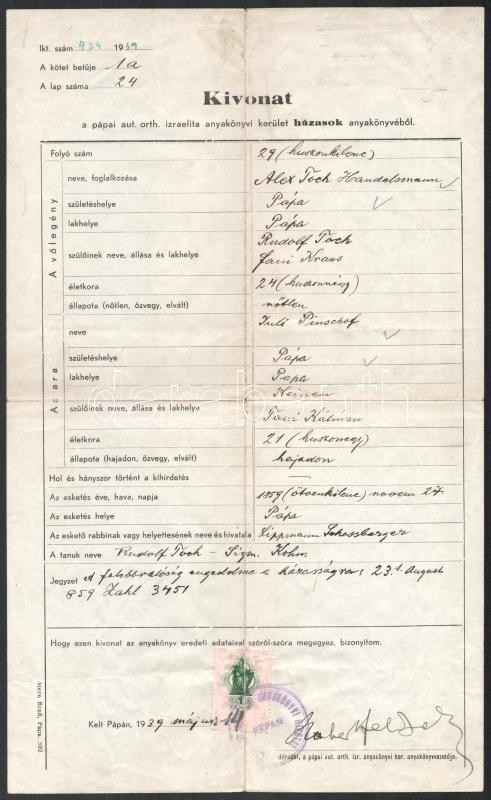 Ikt. szám 924 1939
A kötet betüje 1a
A lap száma 24
Kivonat
a pápai aut. orth. izraelita anyakönyvi kerület házasok anyakönyvéből.
Folyó szám 29 (huszonkilenc)
A vőlegény
neve, foglalkozása Alex Toch Handelsmann
születéshelye Pápa
lakhelye Pápa
szülőinek neve, állása és lakhelye Rudolf Toch
Fani Kraus
életkora 24 (huszonnégy)
állapota (nőtlen, özvegy, elvált) nőtlen
Az ara
neve Juli Pinschof
születéshelye Pápa
lakhelye Pápa
szülőinek neve, állása és lakhelye
Fani Kálmán
életkora 21 (huszonegy)
állapota (hajadon, özvegy, elvált) hajadon
Hol és hányszor történt a kihirdetés —
Az esketés éve, hava, napja 1859 (ötvenkilenc) novem 27.
Az esketés helye Pápa
Az eskető rabbinak vagy helyettesének neve és hivatala Lippmann Schossberger
A tanuk neve Rudolf Toch – Sigm. Kohn.
Jegyzet A felsőbbség engedelme a házasságra: 23. August
859 Zahl 3451
Hogy ezen kivonat az anyakönyv eredeti adataival szóról-szóra megegyez, bizonyítom.
Kelt Pápán, 1939 május 14
PÁPÁN
a pápai aut. orth. izr. anyakönyvi ker. anyakönyvvezetője.
Stern Ernő, Pápa.
darabanth